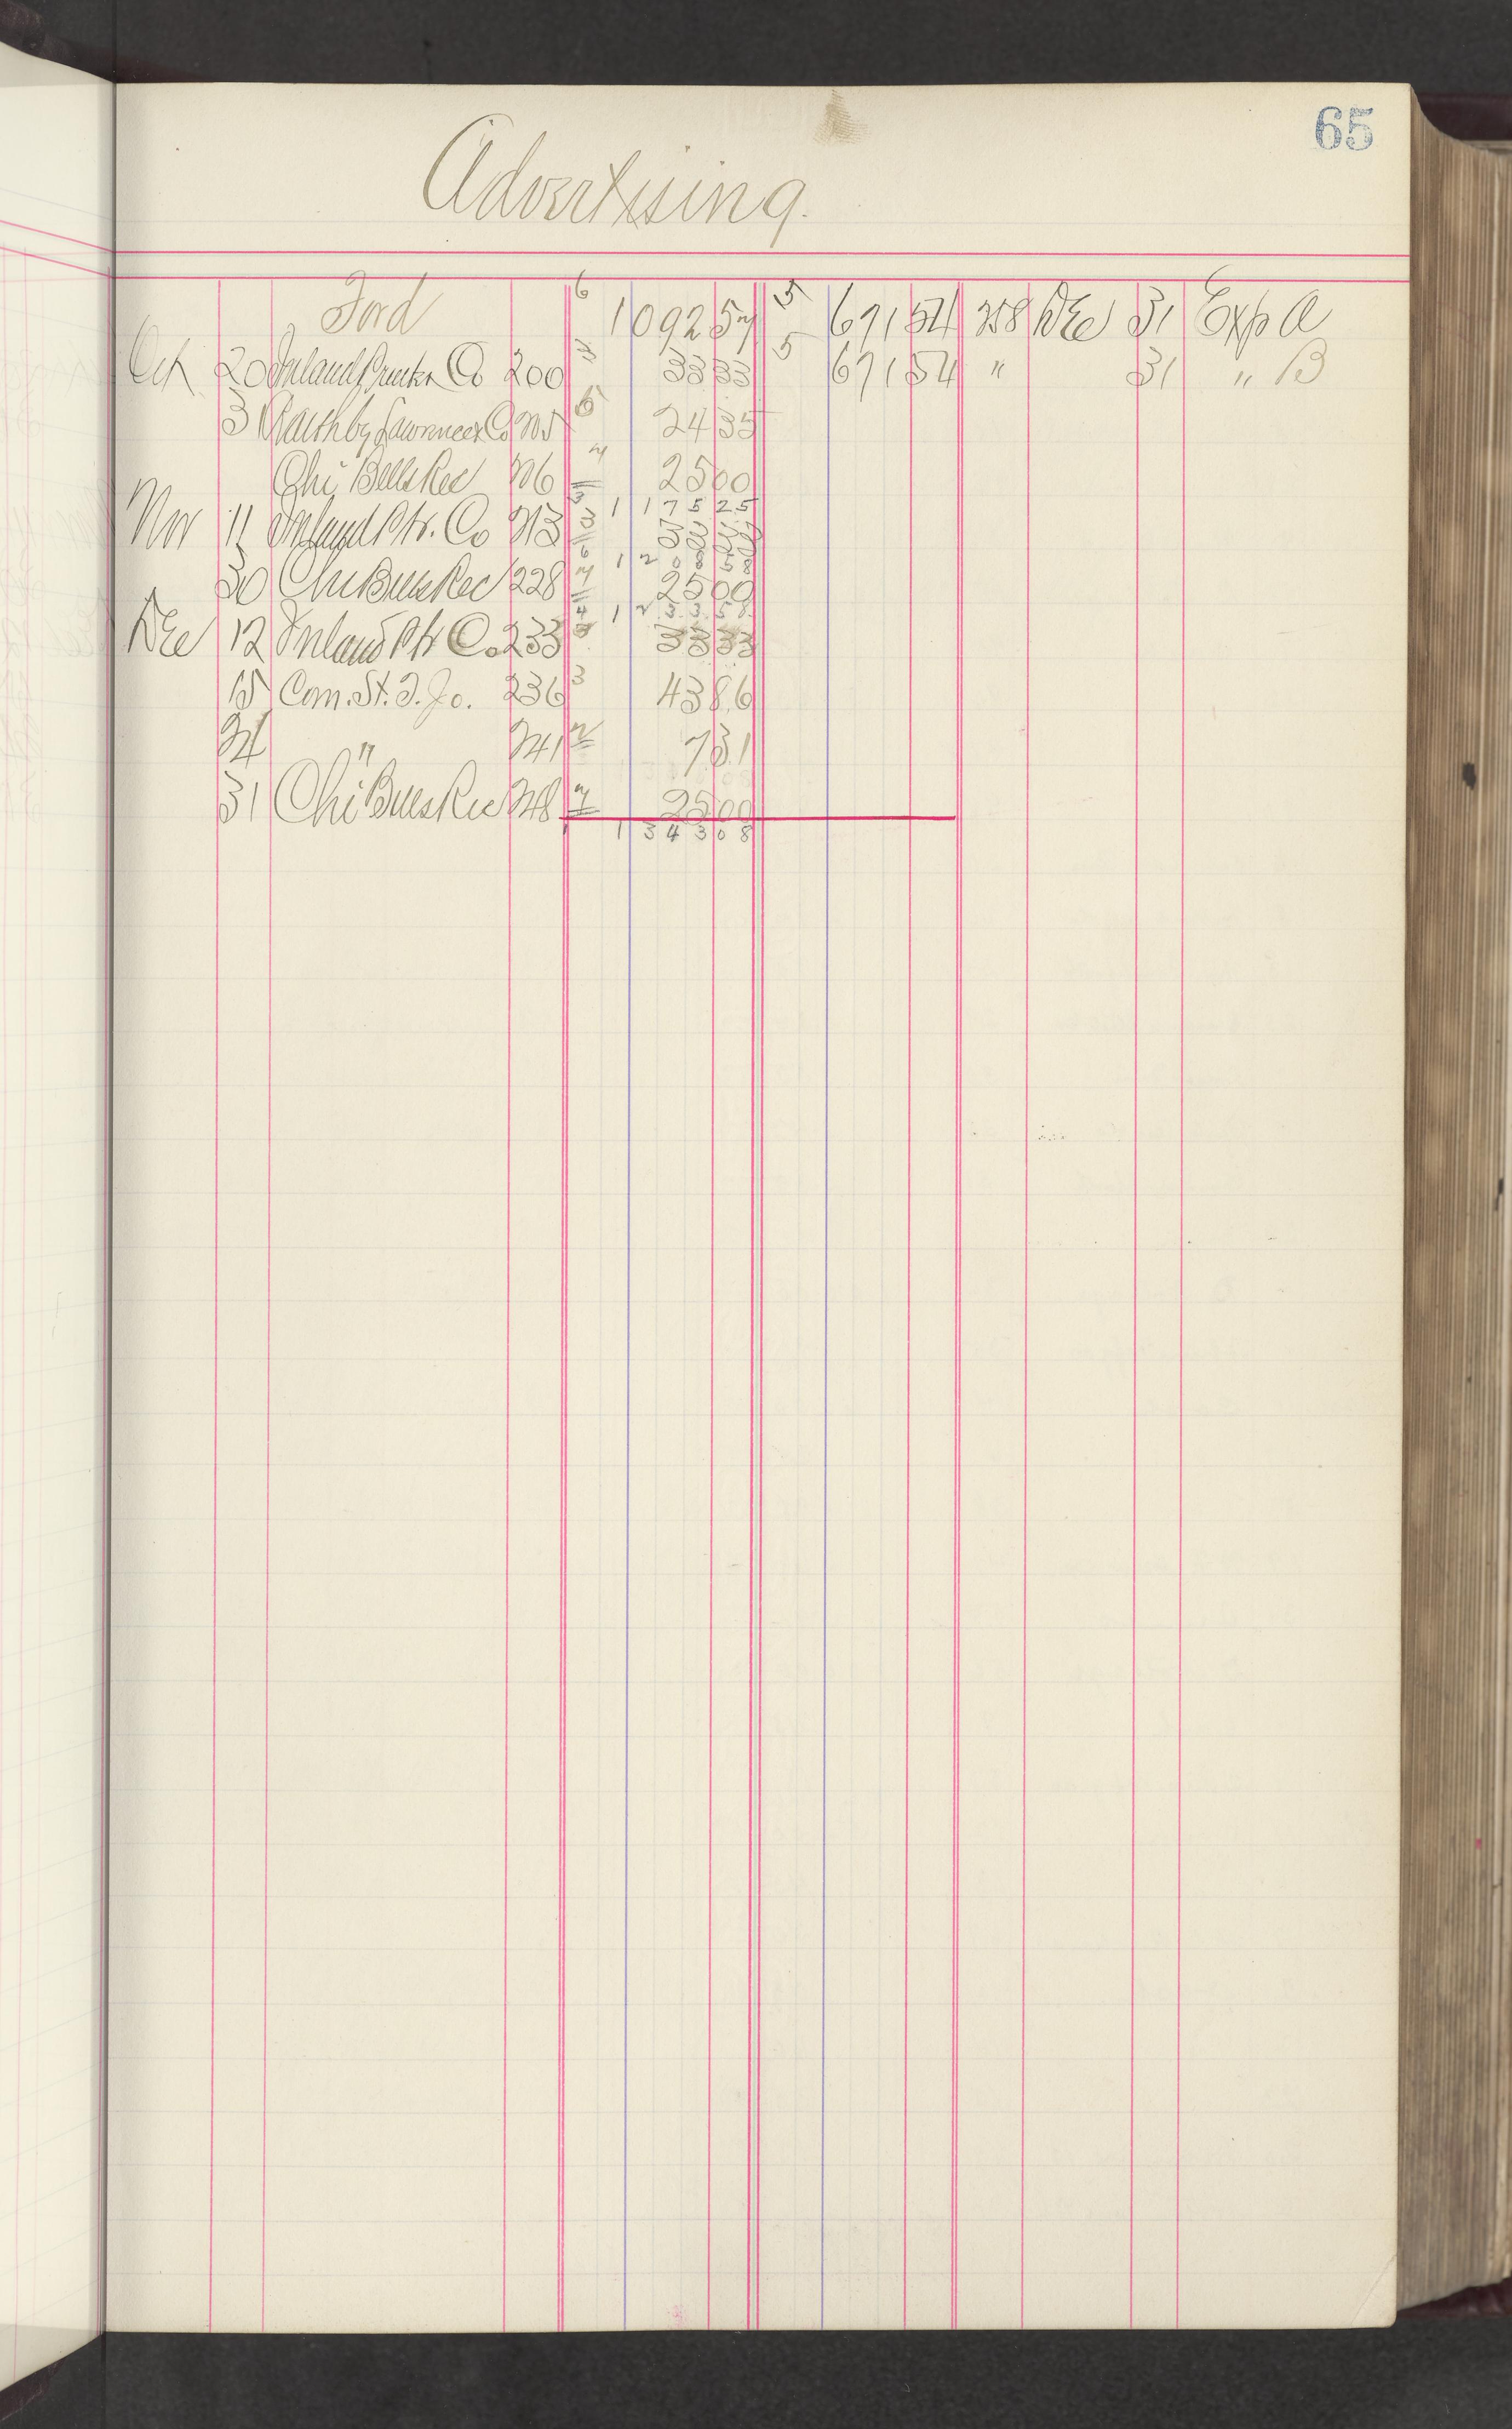 65
Advertising.
Ford 6 1092 57 5 671 54 258 Dec 31 Exp A
Oct 20 Inland Printer Co 200 3 33 33 5 671 54 " 31 " B
31 Raithby Lawrence & Co 205 6 24 35
Chi Bells Rec 206 7 25 00
1 1 7 5 2 5
Nov 11 Inland Ptr. Co 213 3 33 33
6 1 2 0 8 5 8
30 Chi Bells Rec 228 7 25 00
4 1 2 3 3 5 8
Dec 12 Inland Ptr Co. 233 3 33 33
15 Com. St. T. Jo. 236 3 43 86
24 " 241 2 7 31
31 Chi Bells Rec 248 7 25 00
1 3 4 3 0 8